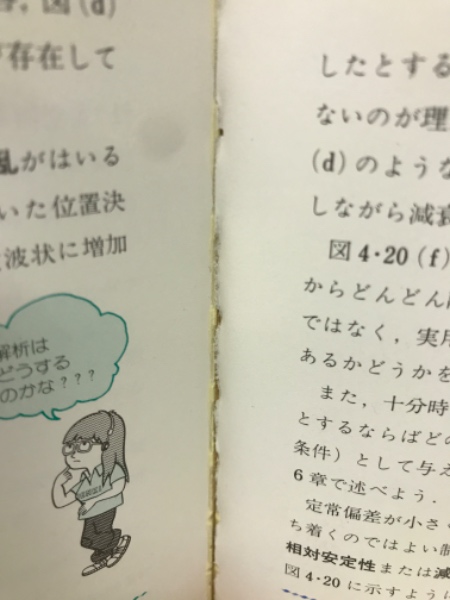 図(d)
存在して
乱がはいる
いた位置決
波状に増加
解析は
どうする
のかな???
したとする
ないのが理
(d)のような
しながら減衰
図4・20(f)
からどんどん
ではなく，実用
あるかどうかを
また，十分時
とするならばどの
条件）として与え
6章で述べよう．
定常偏差が小さ
ち着くのではよい制
相対安定性または減
図4・20に示すように